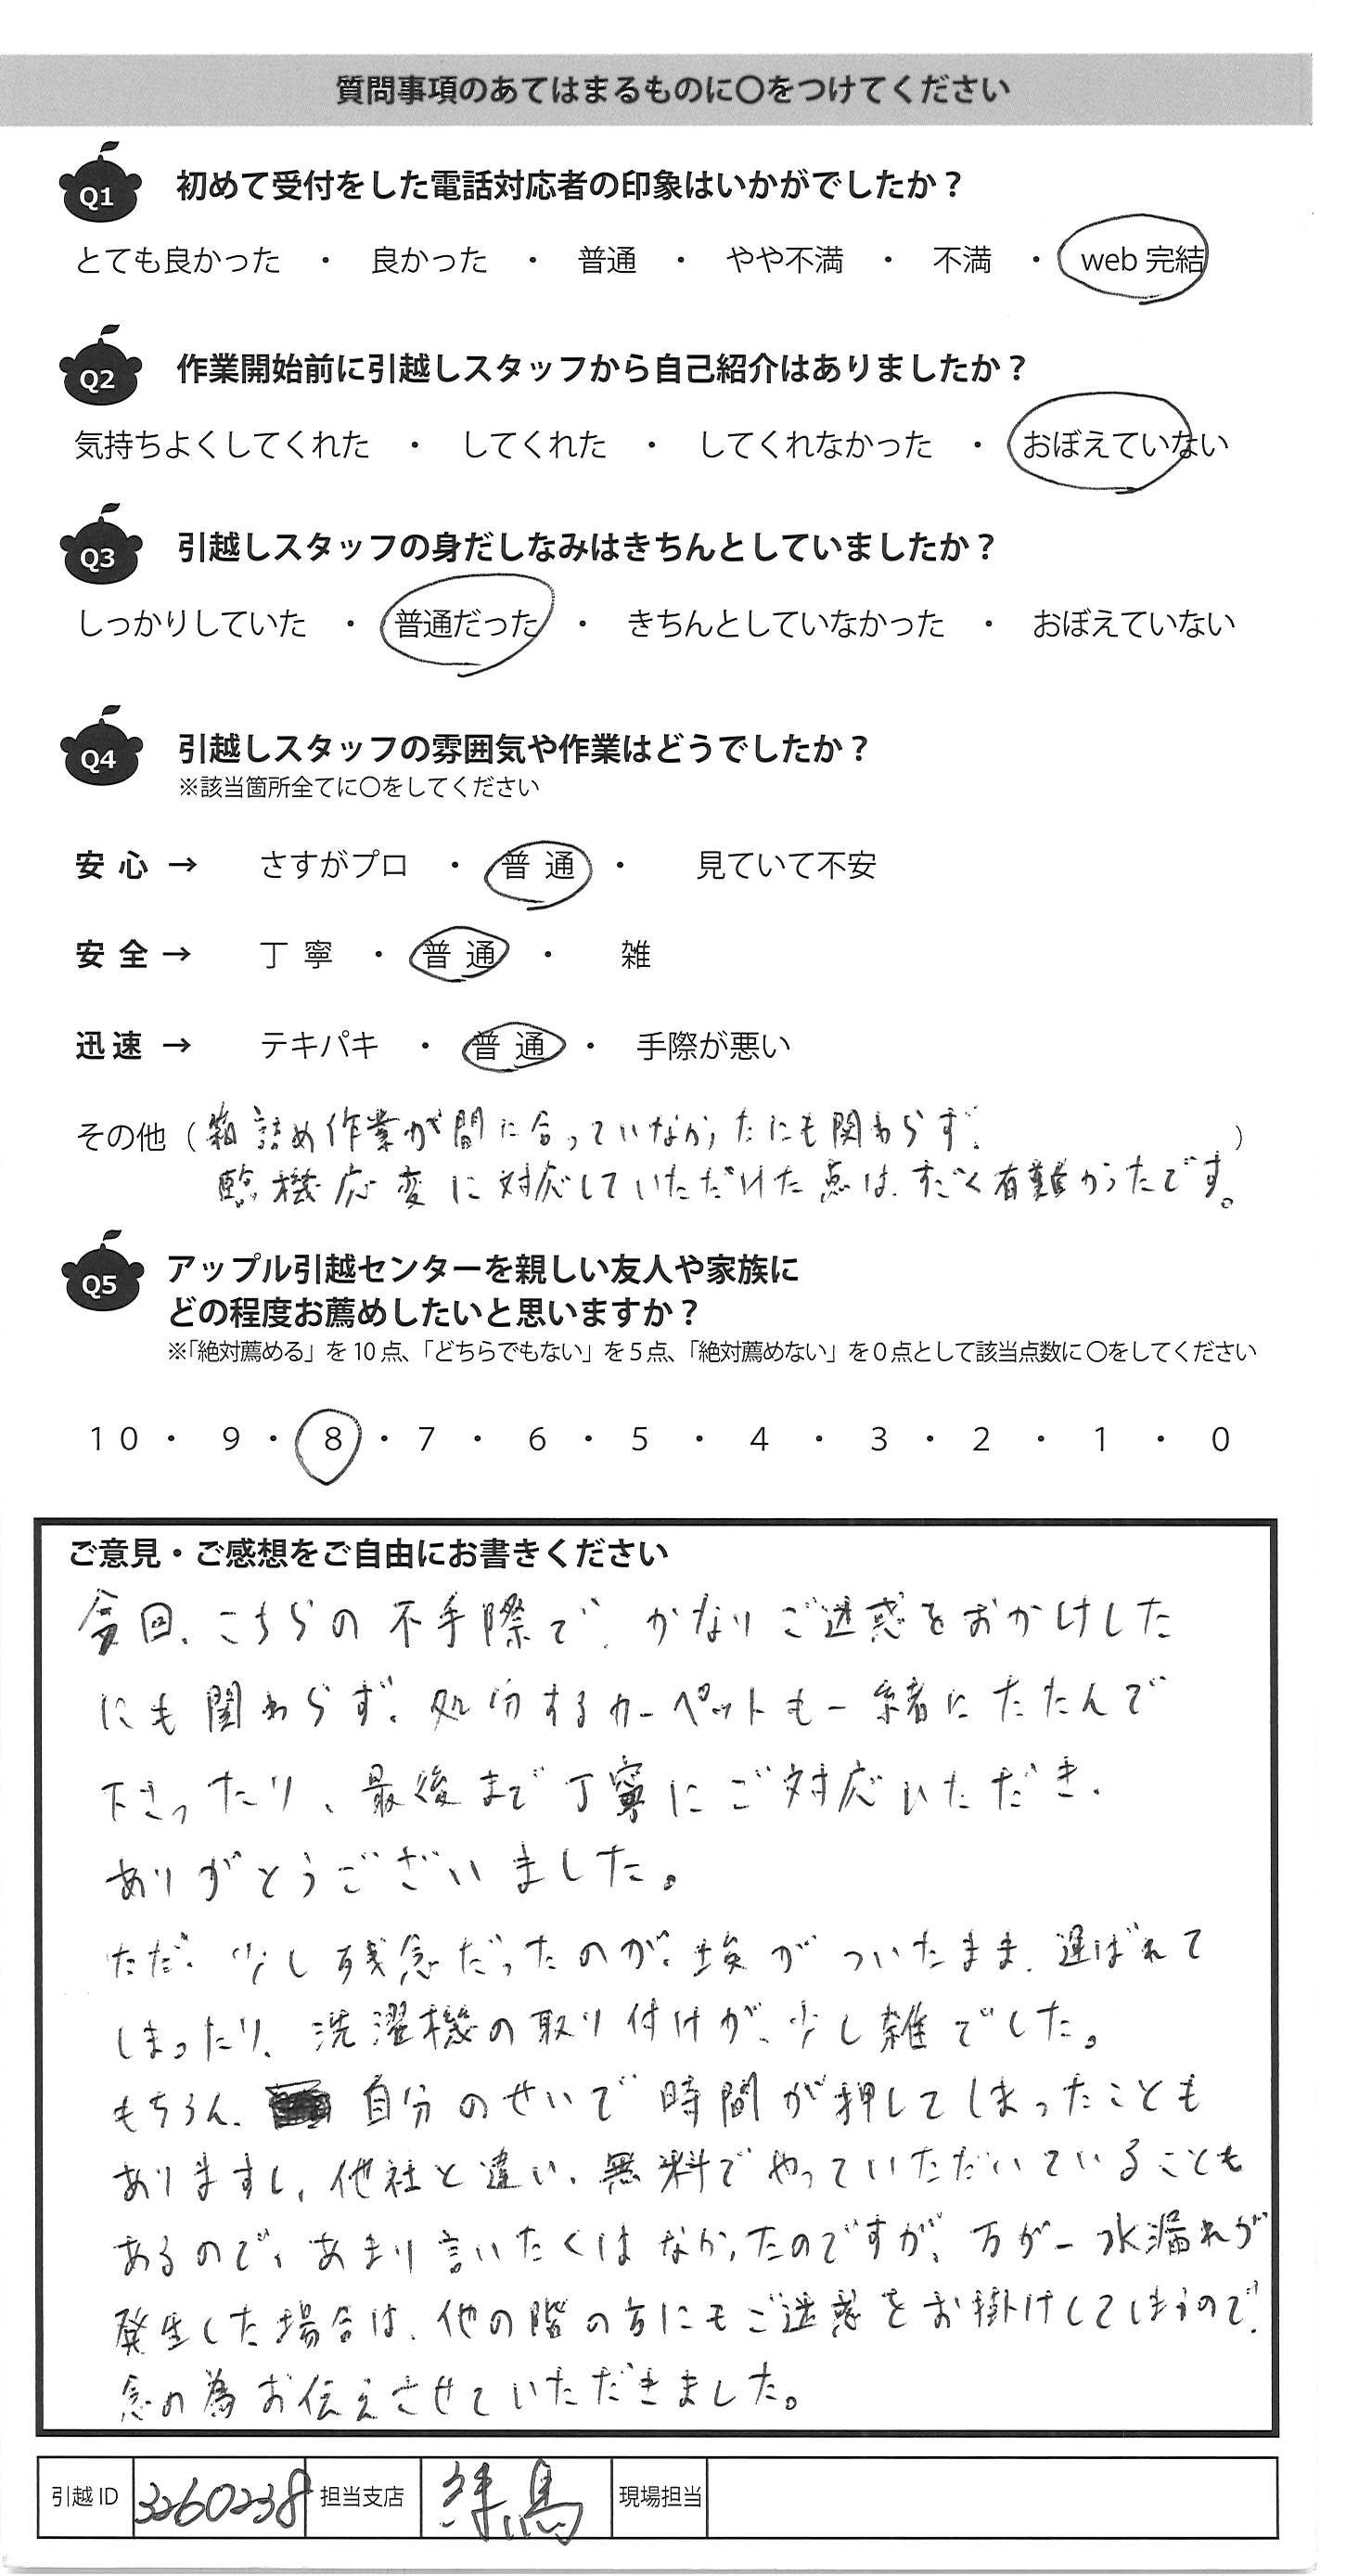 質問事項のあてはまるものに〇をつけてください
Q1 初めて受付をした電話対応者の印象はいかがでしたか？
とても良かった ・ 良かった ・ 普通 ・ やや不満 ・ 不満 ・ web 完結
Q2 作業開始前に引越しスタッフから自己紹介はありましたか？
気持ちよくしてくれた ・ してくれた ・ してくれなかった ・ おぼえていない
Q3 引越しスタッフの身だしなみはきちんとしていましたか？
しっかりしていた ・ 普通だった ・ きちんとしていなかった ・ おぼえていない
Q4 引越しスタッフの雰囲気や作業はどうでしたか？
※該当箇所全てに〇をしてください
安心 → さすがプロ ・ 普通 ・ 見ていて不安
安全 → 丁寧 ・ 普通 ・ 雑
迅速 → テキパキ ・ 普通 ・ 手際が悪い
その他（箱詰め作業が間に合っていなかったにも関わらず、）
臨機応変に対応していただけた点は、すごく有難かったです。
Q5 アップル引越センターを親しい友人や家族に
どの程度お薦めしたいと思いますか？
※「絶対薦める」を 10 点、「どちらでもない」を 5 点、「絶対薦めない」を 0 点として該当点数に 〇をしてください
10 ・ 9 ・ 8 ・ 7 ・ 6 ・ 5 ・ 4 ・ 3 ・ 2 ・ 1 ・ 0
ご意見・ご感想をご自由にお書きください
今回、こちらの不手際で、かなりご迷惑をおかけした
にも関わらず、処分するカーペットも一緒にたたんで
下さったり、最後まで丁寧にご対応いただき、
ありがとうございました。
ただ、少し残念だったのが、埃がついたまま、運ばれて
しまったり、洗濯機の取り付けが、少し雑でした。
もちろん、自分のせいで時間が押してしまったことも
ありますし、他社と違い、無料でやっていただいていることも
あるので、あまり言いたくはなかったのですが、万が一水漏れが
発生した場合は、他の階の方にもご迷惑をお掛けしてしまうので、
念の為お伝えさせていただきました。
引越 ID 3260238 担当支店 練馬 現場担当